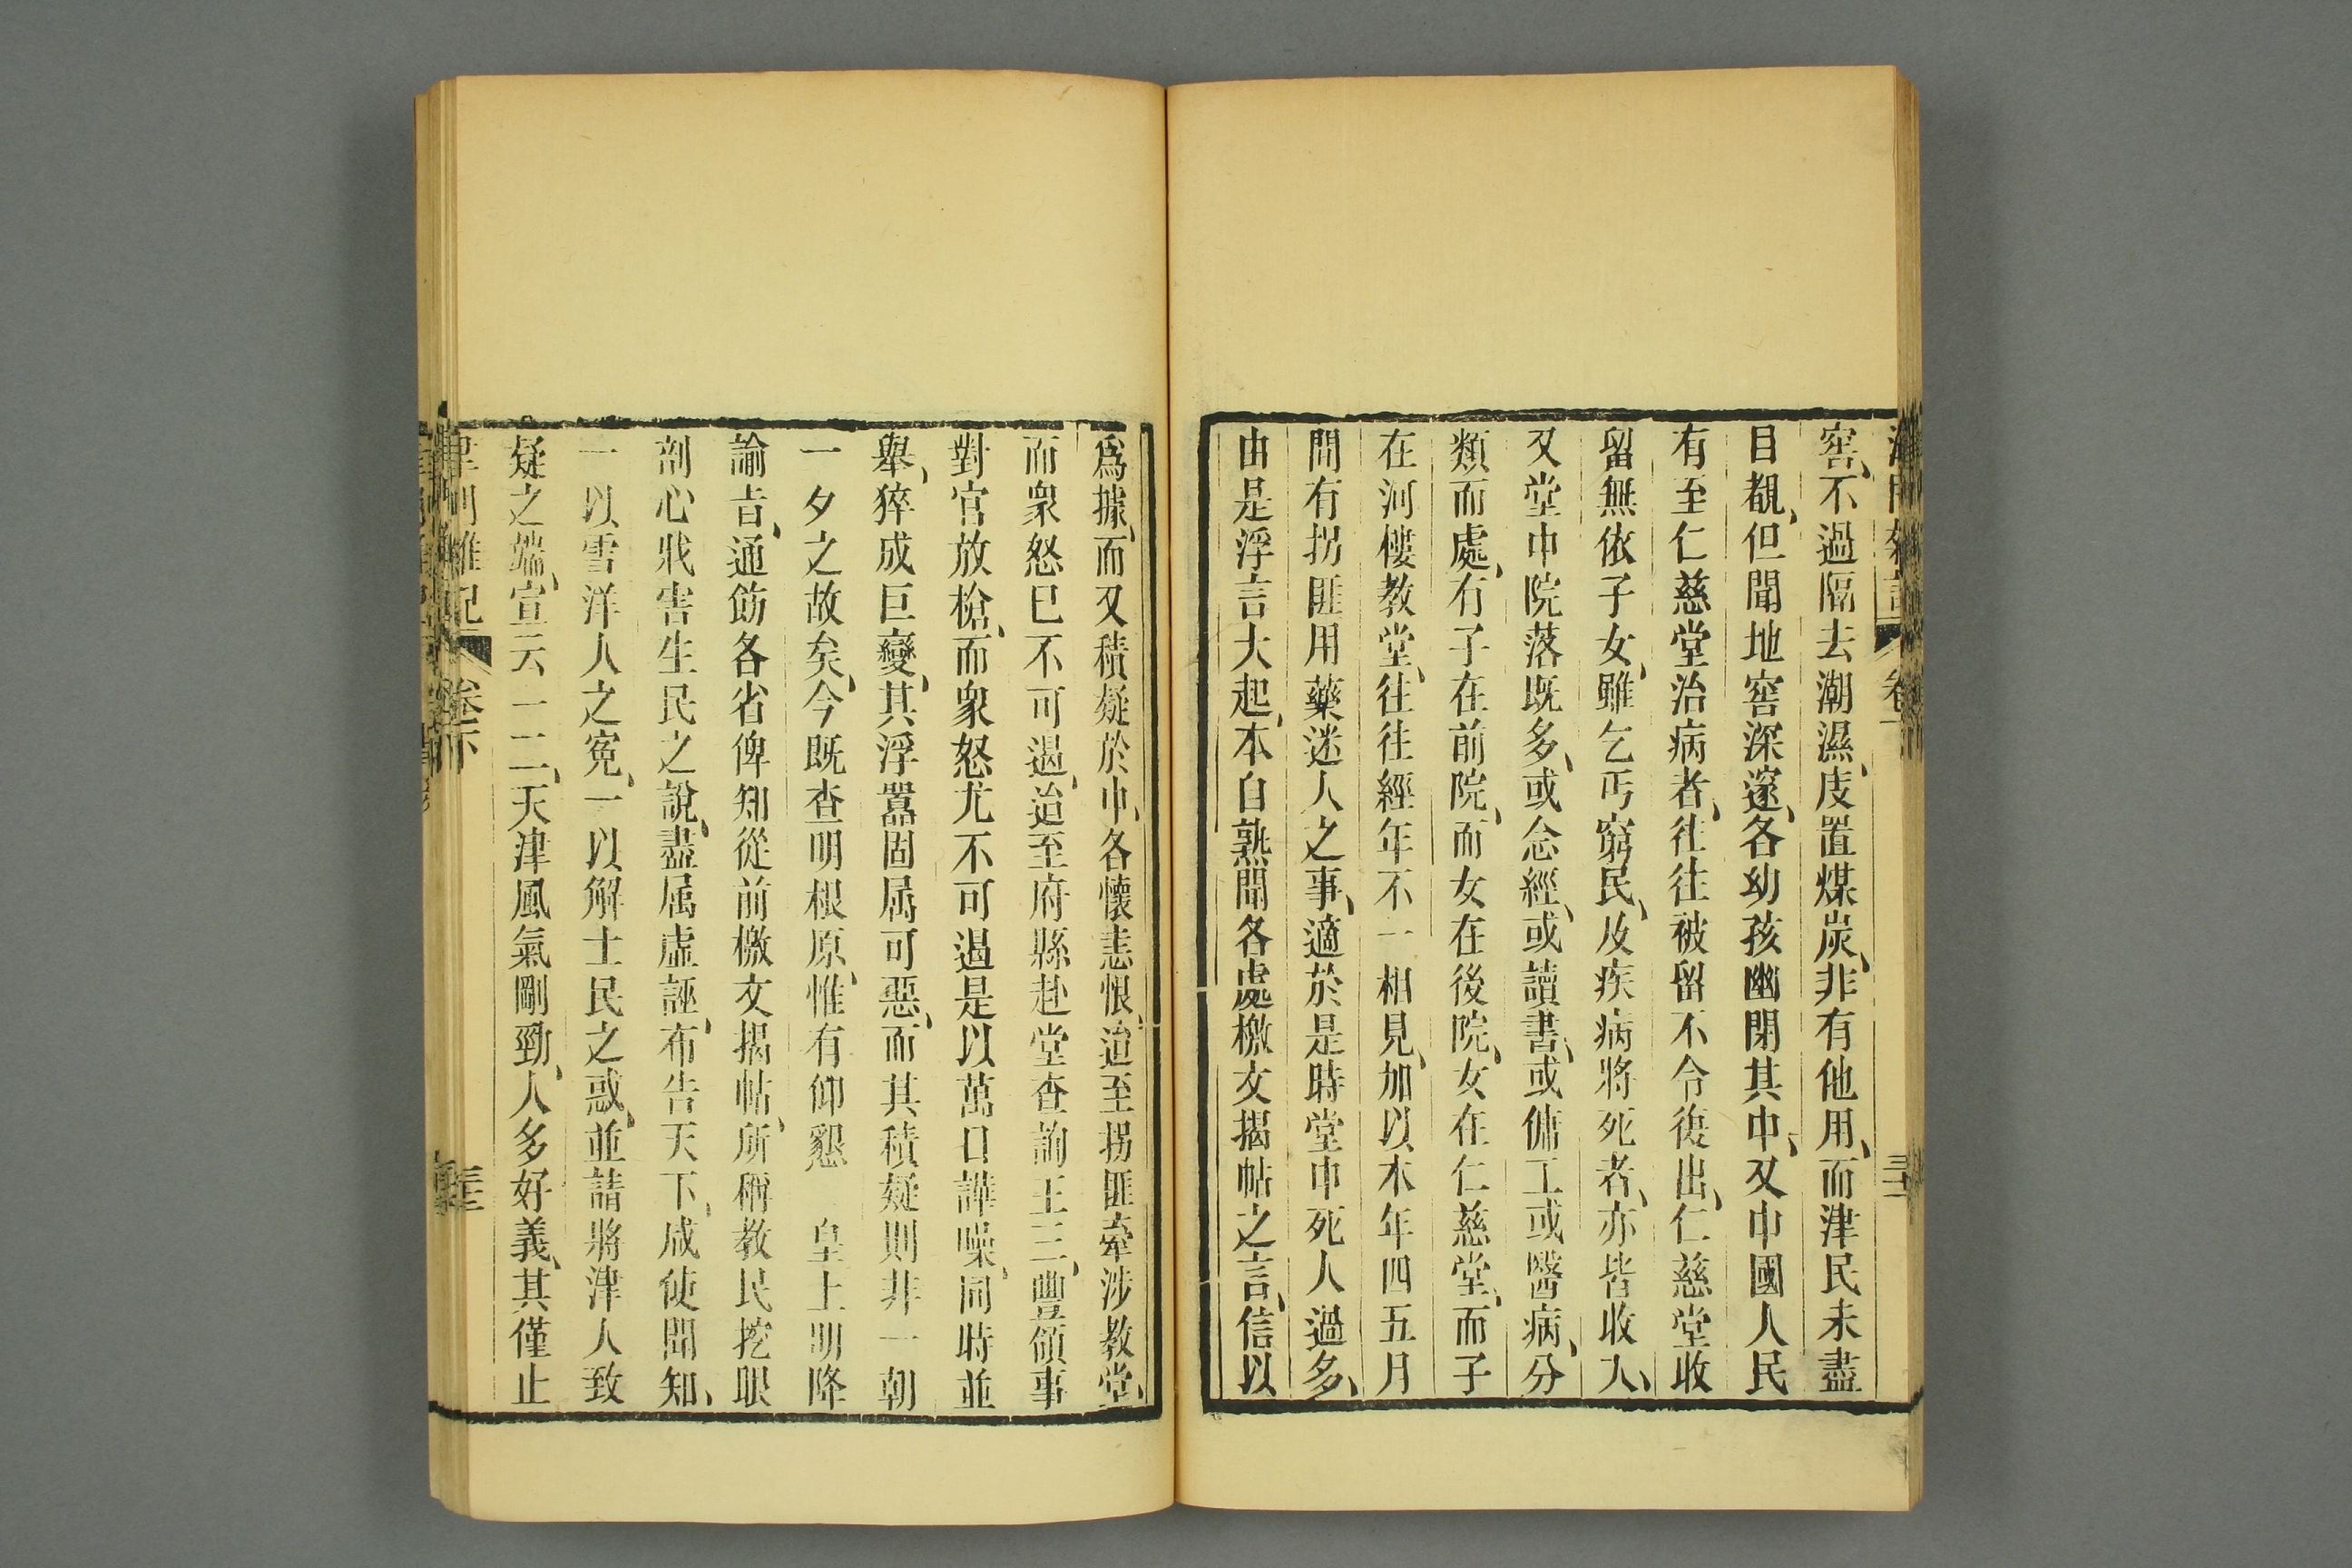 窖、不過隔去潮濕、庋置煤炭、非有他用、而津民未盡
目覩、但聞地窖深邃、各幼孩幽閉其中、又中國人民
有至仁慈堂治病者、往往被留不令復出、仁慈堂收
留無依子女、雖乞丐窮民、及疾病將死者、亦皆收入、
又堂中院落既多、或念經、或讀書、或傭工或醫病、分
類而處、有子在前院、而女在後院、女在仁慈堂、而子
在河樓教堂、往往經年不一相見、加以本年四五月
間有拐匪用藥迷人之事、適於是時堂中死人過多、
由是浮言大起、本自熟聞各處檄文揭帖之言、信以
爲據、而又積疑於中、各懷恚恨、迨至拐匪牽涉教堂、
而衆怒已不可遏、迨至府縣赴堂查詢王三、豐領事
對官放槍、而衆怒尤不可遏是以萬口譁噪、同時並
舉、猝成巨變、其浮囂固屬可惡、而其積疑則非一朝
一夕之故矣、今既查明根原、惟有仰懇 皇上明降
諭旨、通飭各省俾知從前檄文揭帖、所稱教民挖眼
剖心戕害生民之說、盡屬虛誣、布告天下、咸使聞知、
一以雪洋人之寃、一以解士民之惑、並請將津人致
疑之端、宣示一二、天津風氣剛勁、人多好義、其僅止
卷下